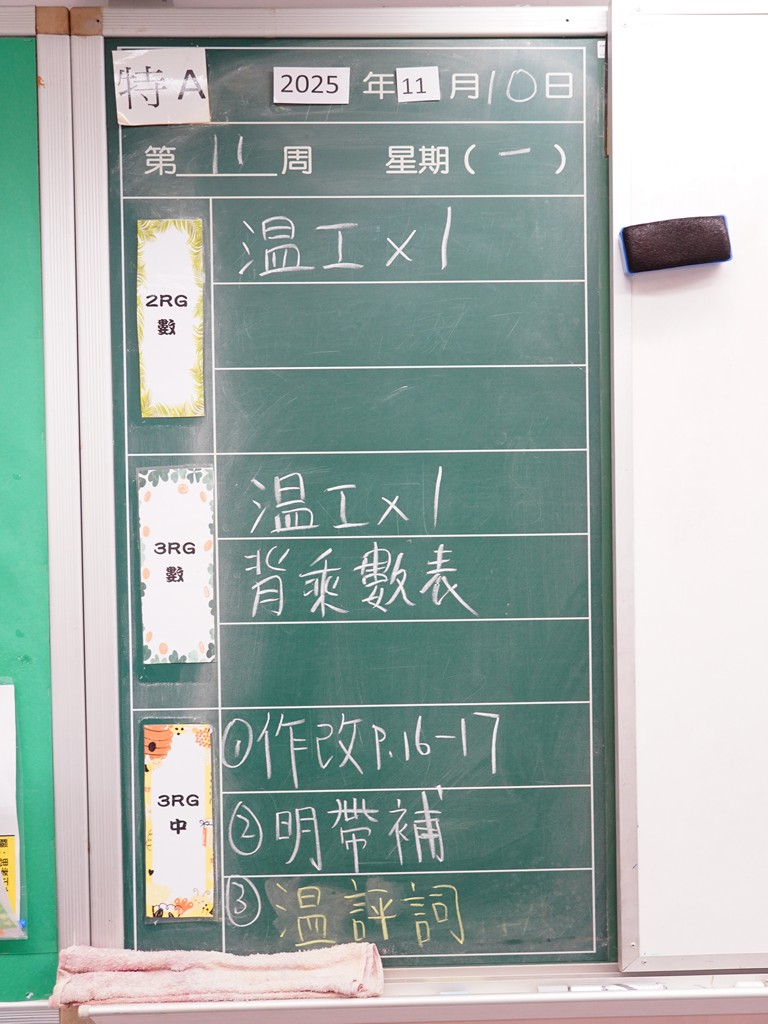 特A 2025 年 11 月 10 日
第 11 周 星期( 一 )
2RG
數
温工×1
3RG
數
温工×1
背乘數表
3RG
中
①作改P.16-17
②明帶補
③温評詞